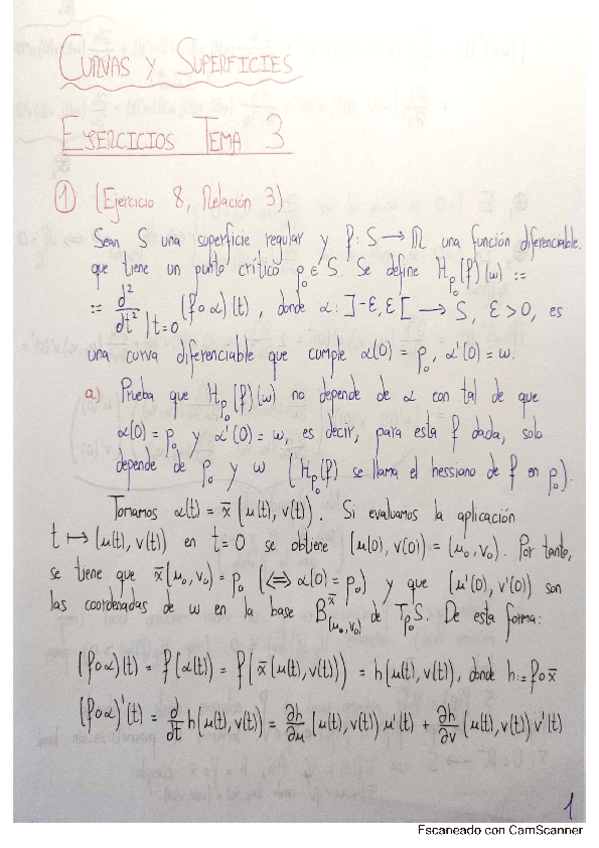 CURVAS Y SUPERFICIES
EJERCICIOS TEMA 3
① (Ejercicio 8, Relación 3)
Sean S una superficie regular y f: S → ℝ una función diferenciable
que tiene un punto crítico p₀ ∈ S. Se define H_{p₀}(f)(w) :=
:= d²/dt² |t=0 (f∘α)(t), donde α: ]-ε,ε[ → S, ε>0, es
una curva diferenciable que cumple α(0) = p₀, α'(0) = w.
a) Prueba que H_{p₀}(f)(w) no depende de α con tal de que
α(0) = p₀ y α'(0) = w, es decir, para esta f dada, solo
depende de p₀ y w (H_{p₀}(f) se llama el hessiano de f en p₀).
Tomamos α(t) = x̄(μ(t), v(t)). Si evaluamos la aplicación
t ↦ (μ(t), v(t)) en t=0 se obtiene (μ(0), v(0)) = (μ₀, v₀). Por tanto,
se tiene que x̄(μ₀, v₀) = p₀ (⟺ α(0) = p₀) y que (μ'(0), v'(0)) son
las coordenadas de w en la base B^{x̄}_{(μ₀, v₀)} de T_{p₀}S. De esta forma:
(f∘α)(t) = f(α(t)) = f(x̄(μ(t), v(t))) = h(μ(t), v(t)), donde h := f∘x̄
(f∘α)'(t) = d/dt h(μ(t), v(t)) = ∂h/∂μ (μ(t), v(t)) μ'(t) + ∂h/∂v (μ(t), v(t)) v'(t)
1
Escaneado con CamScanner